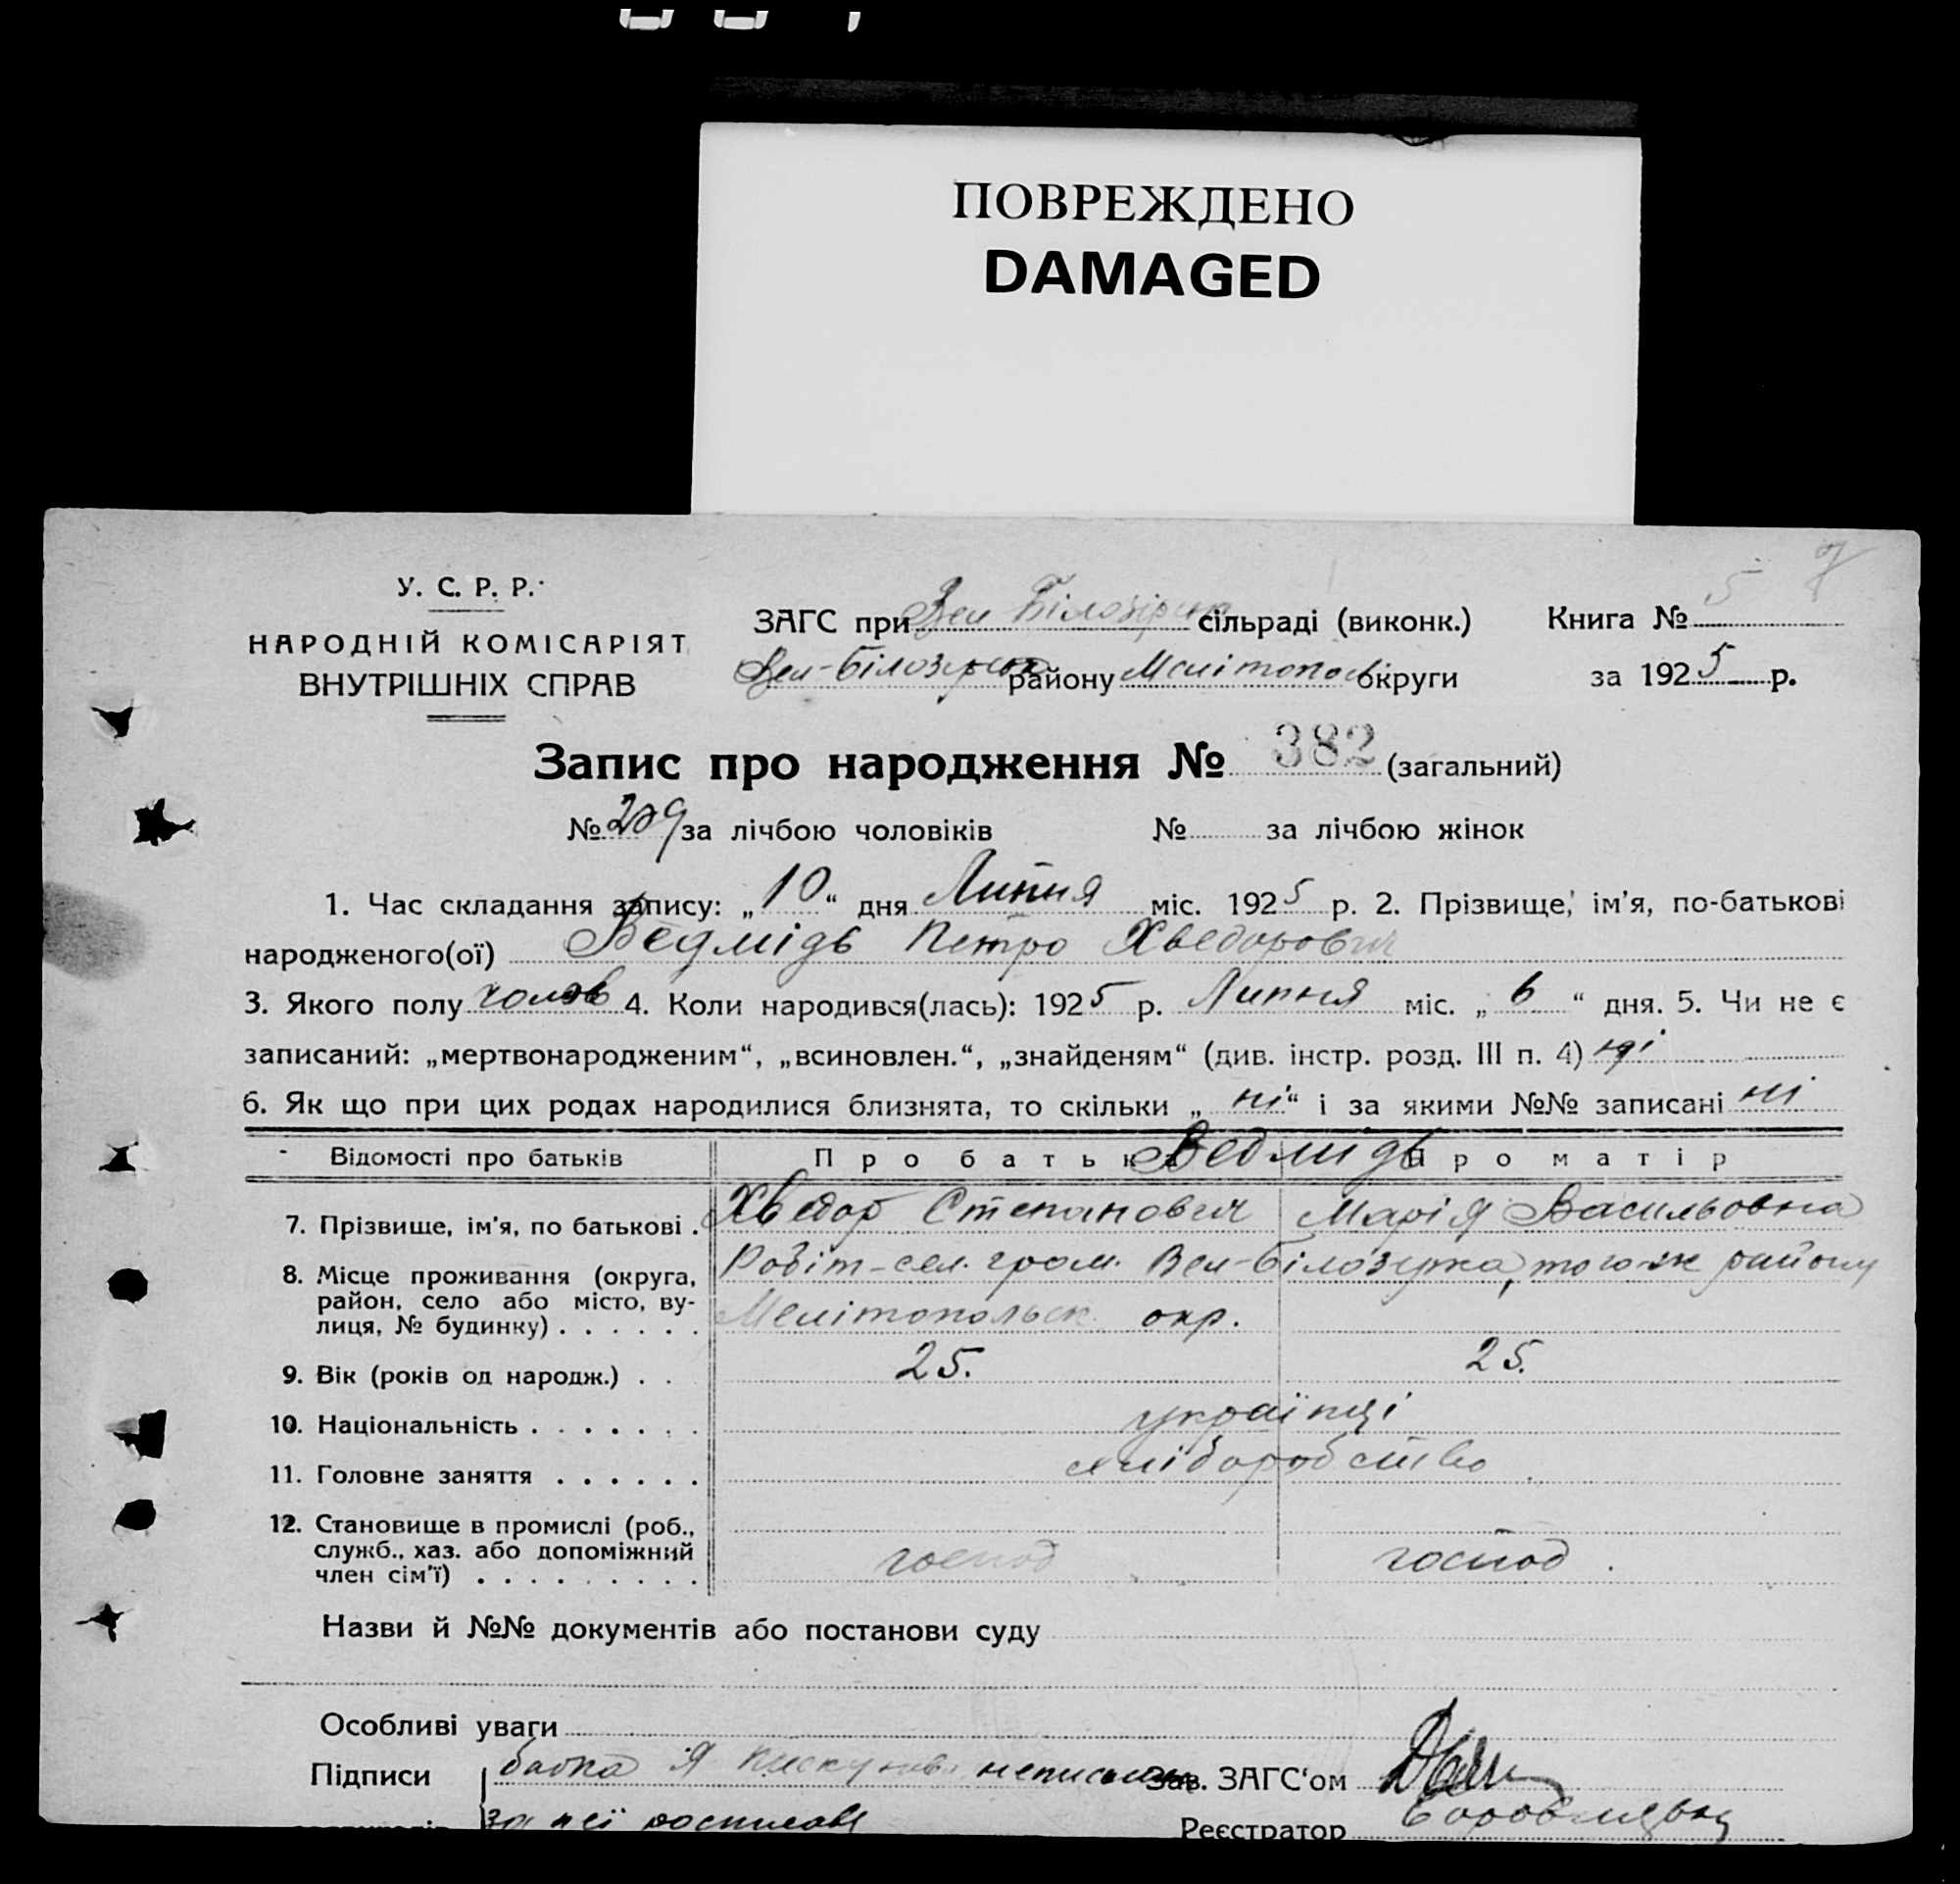 ПОВРЕЖДЕНО
DAMAGED
У. С. Р. Р.
НАРОДНІЙ КОМІСАРІЯТ
ВНУТРІШНІХ СПРАВ
ЗАГС при Вел Білозірск сільраді (виконк.) Книга № 5
Вел-Білозерск району Мелітопол округи за 1925 р.
Запис про народження № 382 (загальний)
№ 209 за лічбою чоловіків № за лічбою жінок
1. Час складання запису: „10“ дня Липня міс. 1925 р. 2. Прізвище, ім'я, по-батькові
народженого(ої) Ведмідь Петро Хведорович
3. Якого полу чолов 4. Коли народився(лась): 1925 р. Липня міс. „6“ дня. 5. Чи не є
записаний: „мертвонародженим“, „всиновлен.“, „знайденям“ (див. інстр. розд. III п. 4) ні
6. Як що при цих родах народилися близнята, то скільки „ні“ і за якими №№ записані ні
Відомості про батьків Про батька Про матір
Ведмідь
7. Прізвище, ім'я, по батькові . Хведор Степанович Марія Васильовна
8. Місце проживання (округа, Робіт-сел. гром. Вел-Білозерка, того-ж району
район, село або місто, ву-
лиця, № будинку) . . . . . . Мелітопольск. окр.
9. Вік (років од народж.) . . 25. 25.
10. Національність . . . . . . . українці
11. Головне заняття . . . . . . хліборобство
12. Становище в промислі (роб.,
служб., хаз. або допоміжний господ господ.
член сім'ї) . . . . . . . . .
Назви й №№ документів або постанови суду
Особливі уваги
Підписи бабка Я неписьмен Зав. ЗАГС'ом
за неї росписавсь Реєстратор